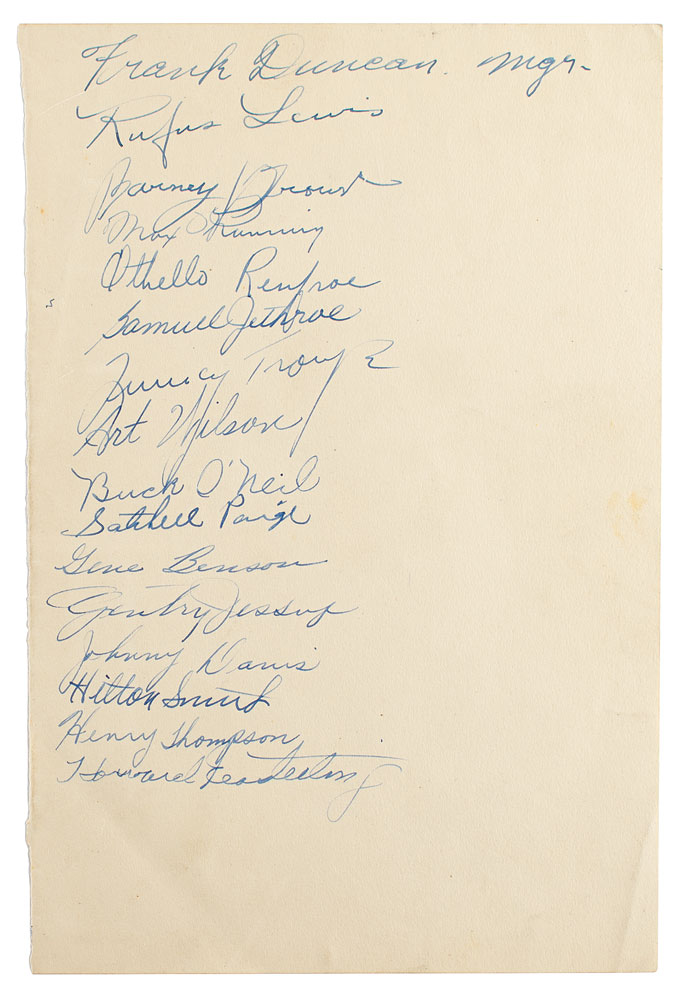 Frank Duncan. Mgr.
Rufus Lewis
Barney Brown
Max Manning
Othello Renfroe
Samuel Jethroe
Quincy Troupe
Art Wilson
Buck O'Neil
Satchell Paige
Gene Benson
Gentry Jessup
Johnny Davis
Hilton Smith
Henry Thompson
Howard Easterling